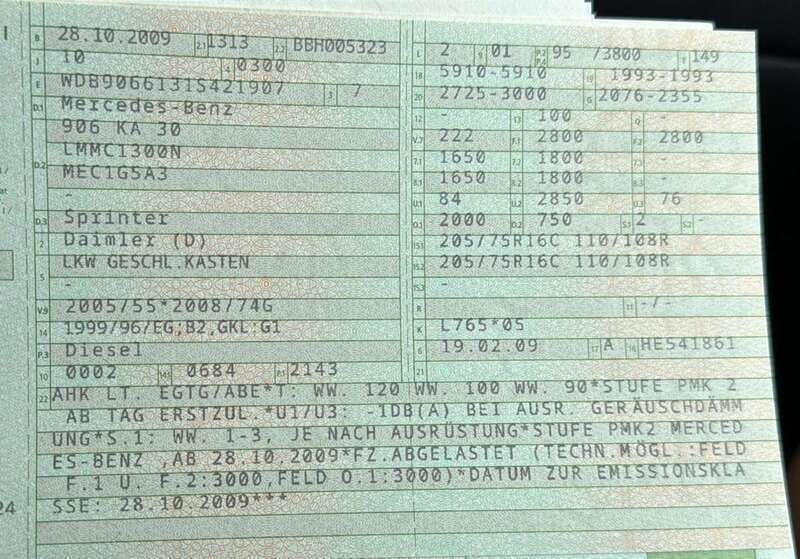 B 28.10.2009 2.1 1313 2.2 BBH005323
J 10 4 0300
E WDB9066131S421907 3 7
D.1 Mercedes-Benz
906 KA 30
D.2 LMMC1300N
MEC1G5A3
-
D.3 Sprinter
2 Daimler (D)
5 LKW GESCHL.KASTEN
-
V.9 2005/55*2008/74G
14 1999/96/EG;B2,GKL:G1
P.3 Diesel
10 0002 14.1 0684 P.1 2143
L 2 9 01 P.2 P.4 95 /3800 T 149
18 5910-5910 19 1993-1993
20 2725-3000 G 2076-2355
12 - 13 100 Q -
V.7 222 F.1 2800 F.2 2800
7.1 1650 7.2 1800 7.3 -
8.1 1650 8.2 1800 8.3 -
U.1 84 U.2 2850 U.3 76
O.1 2000 O.2 750 S.1 2 S.2 -
15.1 205/75R16C 110/108R
15.2 205/75R16C 110/108R
15.3 -
R 11 -/-
K L765*05
6 19.02.09 17 A 16 HE541861
21
22 AHK LT. EGTG/ABE*T: WW. 120 WW. 100 WW. 90*STUFE PMK 2
AB TAG ERSTZUL.*U1/U3: -1DB(A) BEI AUSR. GERÄUSCHDÄMM
UNG*S.1: WW. 1-3, JE NACH AUSRÜSTUNG*STUFE PMK2 MERCED
ES-BENZ ,AB 28.10.2009*FZ.ABGELASTET (TECHN.MÖGL.:FELD
F.1 U. F.2:3000,FELD O.1:3000)*DATUM ZUR EMISSIONSKLA
SSE: 28.10.2009***